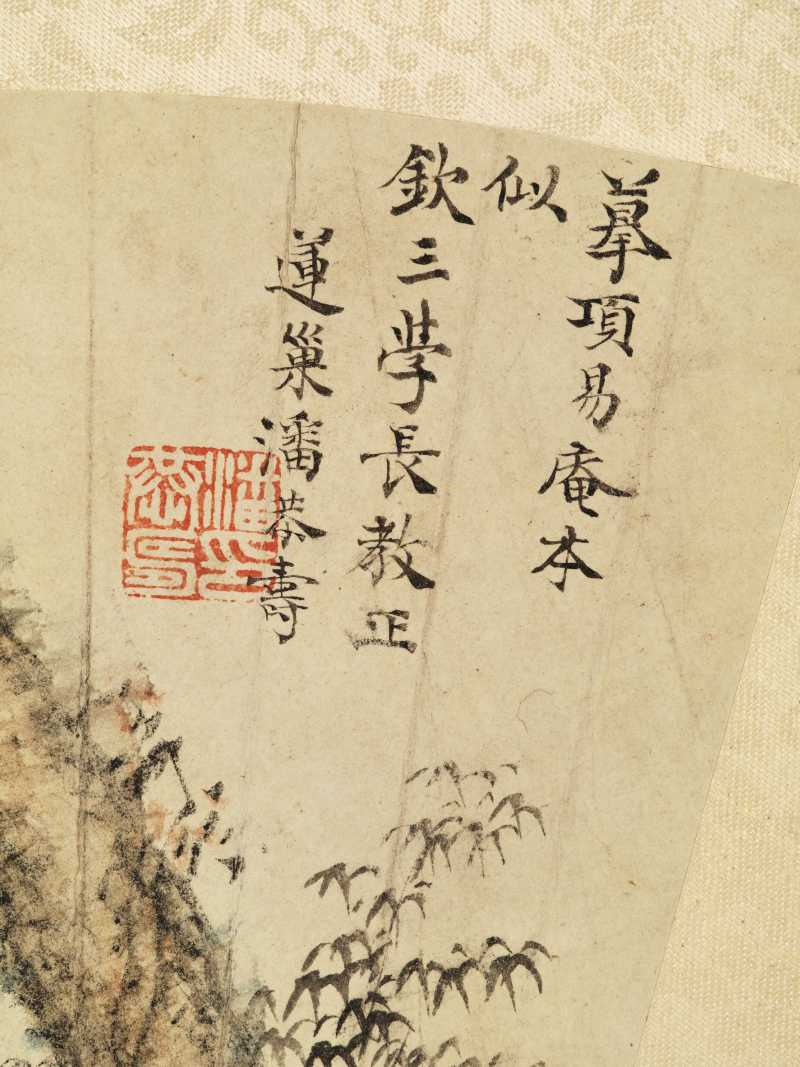 摹項易庵本
似
欽三學長教正
蓮巢潘恭壽